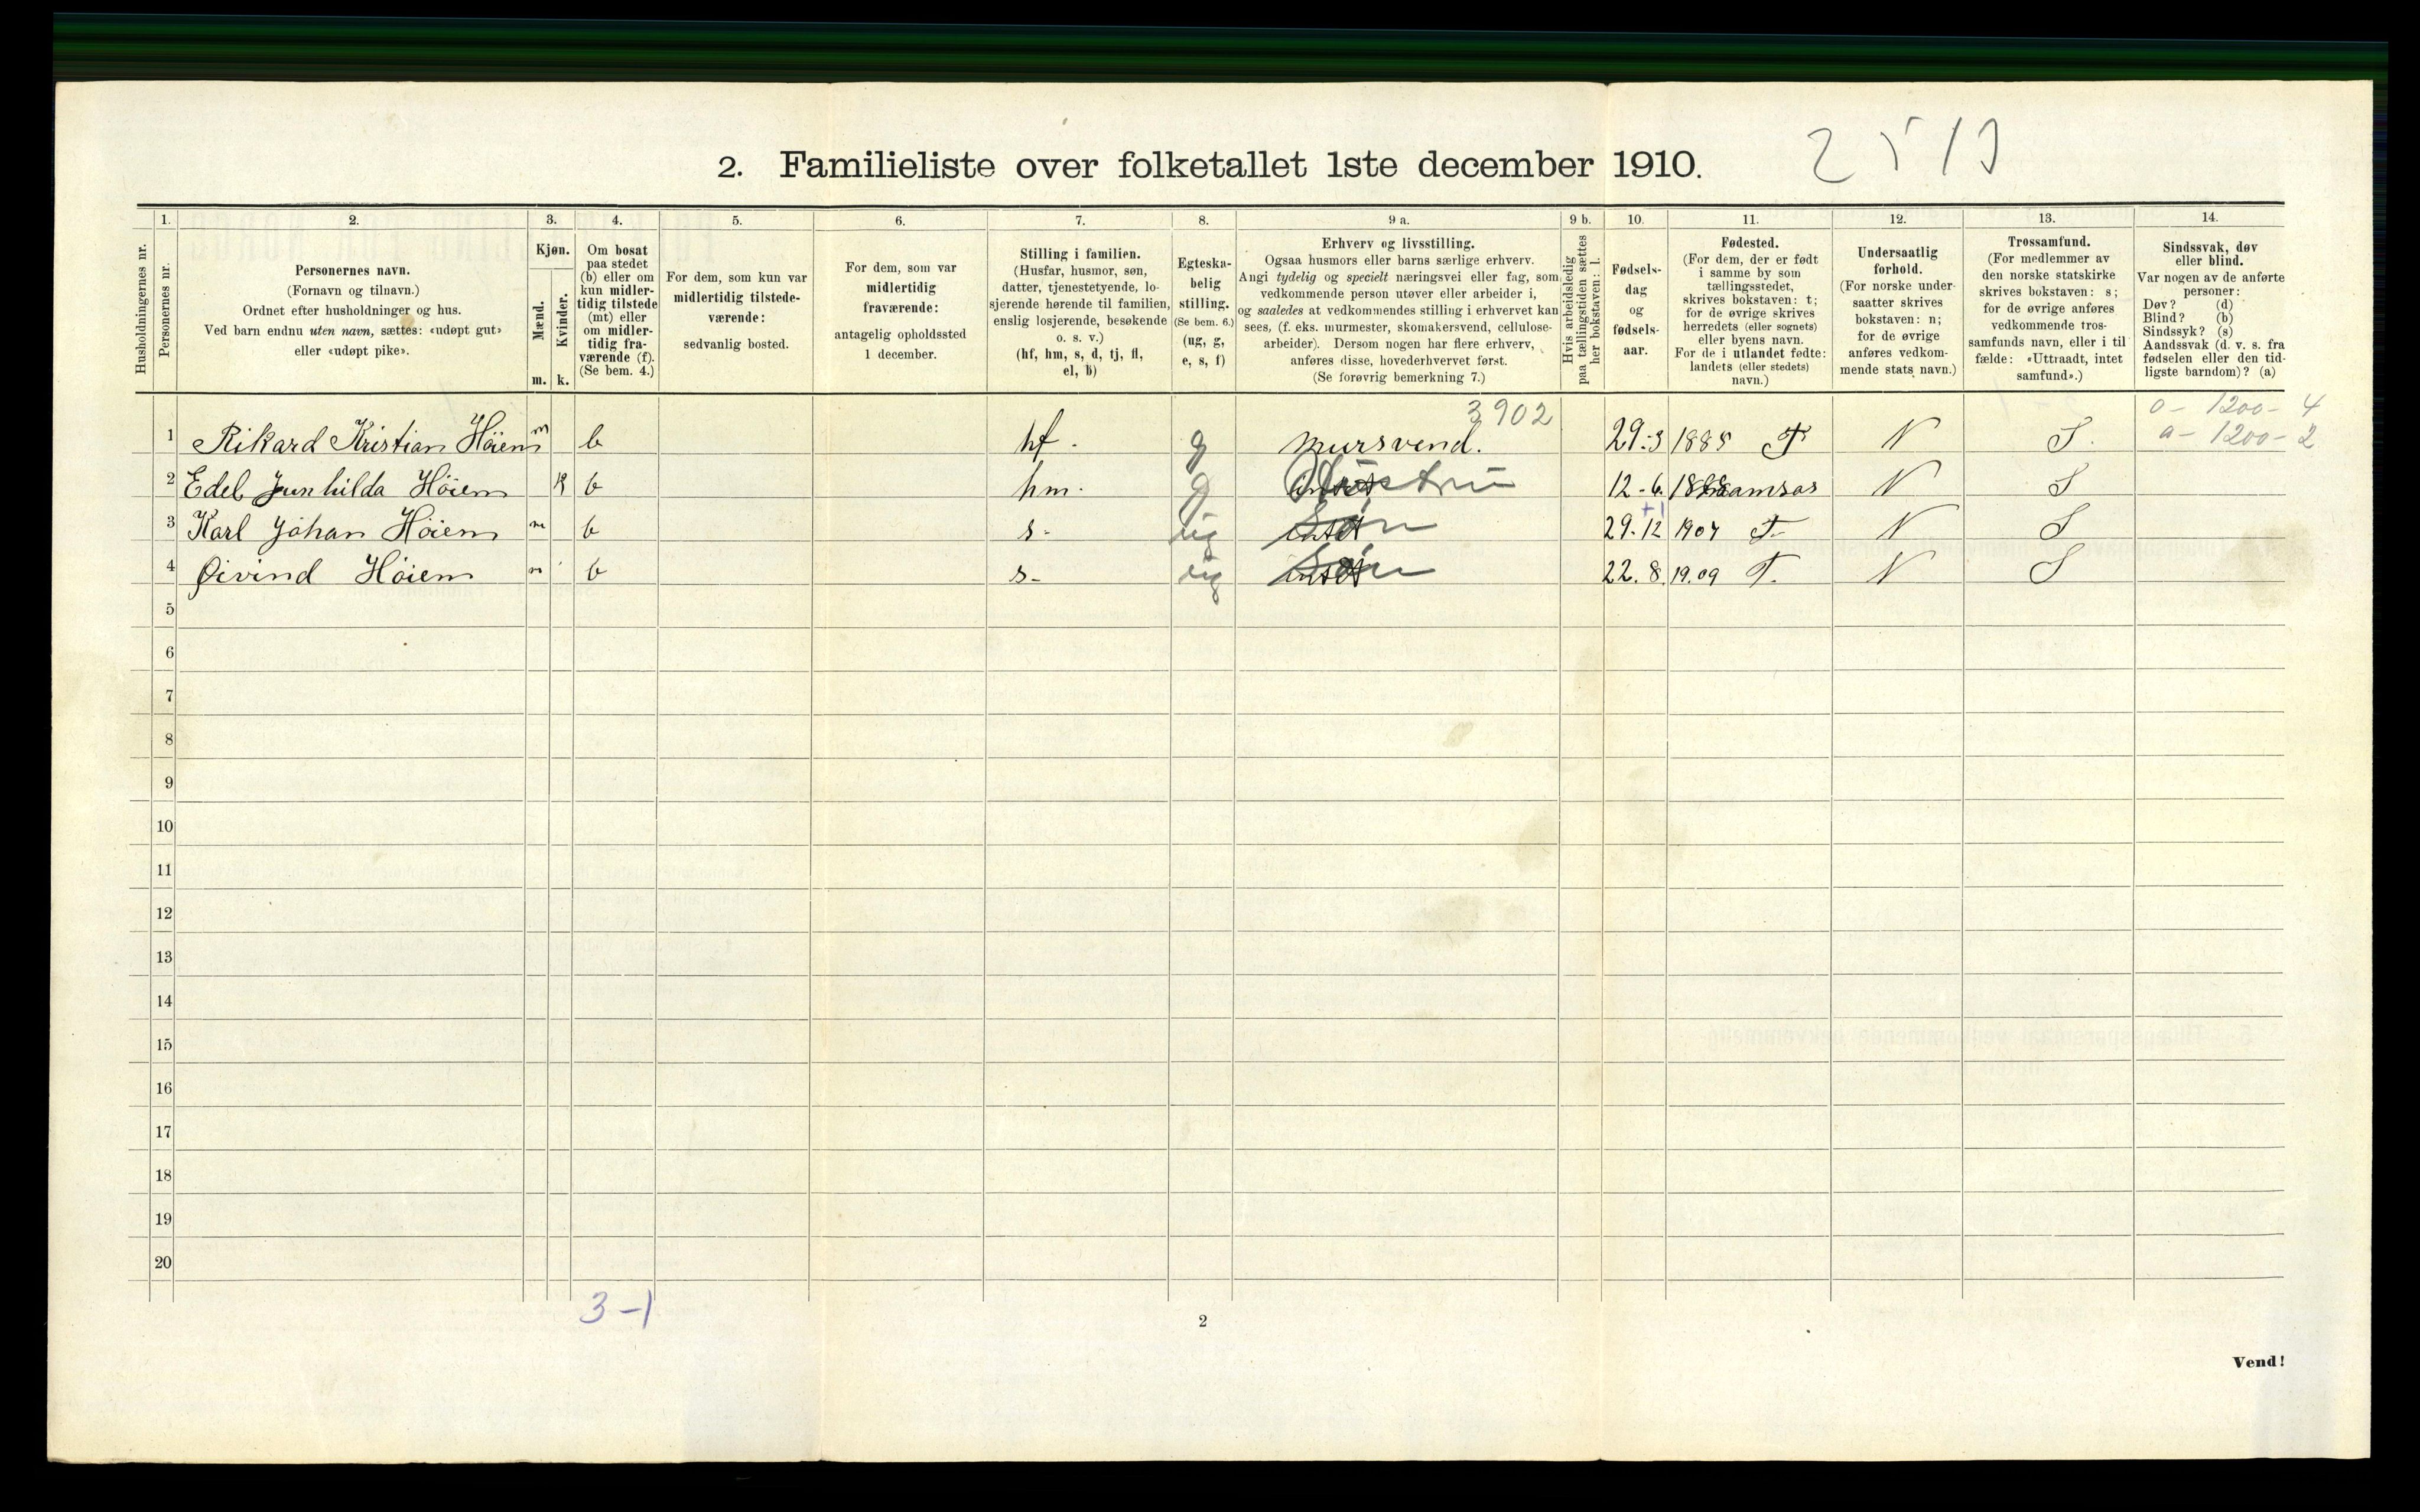 2 5 / 9
2. Familieliste over folketallet 1ste december 1910.
Husholdningernes nr.
1.
Personernes nr.
2.
Personernes navn.
(Fornavn og tilnavn.)
Ordnet efter husholdninger og hus.
Ved barn endnu uten navn, sættes: «udøpt gut»
eller «udøpt pike».
3.
Kjøn.
Mænd.
Kvinder.
m. k.
4.
Om bosat
paa stedet
(b) eller om
kun midler-
tidig tilstede
(mt) eller
om midler-
tidig fra-
værende (f).
(Se bem. 4.)
5.
For dem, som kun var
midlertidig tilstede-
værende:
sedvanlig bosted.
6.
For dem, som var
midlertidig
fraværende:
antagelig opholdssted
1 december.
7.
Stilling i familien.
(Husfar, husmor, søn,
datter, tjenestetyende, lo-
sjerende hørende til familien,
enslig losjerende, besøkende
o. s. v.)
(hf, hm, s, d, tj, fl,
el, b)
8.
Egteska-
belig
stilling.
(Se bem. 6.)
(ug, g,
e, s, f)
9 a.
Erhverv og livsstilling.
Ogsaa husmors eller barns særlige erhverv.
Angi tydelig og specielt næringsvei eller fag, som
vedkommende person utøver eller arbeider i,
og saaledes at vedkommendes stilling i erhvervet kan
sees, (f. eks. murmester, skomakersvend, cellulose-
arbeider). Dersom nogen har flere erhverv,
anføres disse, hovederhvervet først.
(Se forøvrig bemerkning 7.)
9 b.
Hvis arbeidsledig
paa tællingstiden sættes
her bokstaven: l.
10.
Fødsels-
dag
og
fødsels-
aar.
11.
Fødested.
(For dem, der er født
i samme by som
tællingsstedet,
skrives bokstaven: t;
for de øvrige skrives
herredets (eller sognets)
eller byens navn.
For de i utlandet fødte:
landets (eller stedets)
navn.)
12.
Undersaatlig
forhold.
(For norske under-
saatter skrives
bokstaven: n;
for de øvrige
anføres vedkom-
mende stats navn.)
13.
Trossamfund.
(For medlemmer av
den norske statskirke
skrives bokstaven: s;
for de øvrige anføres
vedkommende tros-
samfunds navn, eller i til
fælde: «Uttraadt, intet
samfund».)
14.
Sindssvak, døv
eller blind.
Var nogen av de anførte
personer:
Døv? (d)
Blind? (b)
Sindssyk? (s)
Aandssvak (d. v. s. fra
fødselen eller den tid-
ligste barndom)? (a)
3902
o - 1200 - 4
a - 1200 - 2
1 Rikard Kristian Höiem m b hf. g Mursvend. 29.3 1885 T N S.
2 Edel Gunhilda Höiem k b hm. g Hustru 12-6. N S
3 Karl Johan Höiem m b s- ug Søn 29.12 1907 T. N S
4 Øivind Höiem m b s- ug Søn 22.8. 19.09 T. N S
5
6
7
8
9
10
11
12
13
14
15
16
17
18
19
20
3-1
2
Vend!